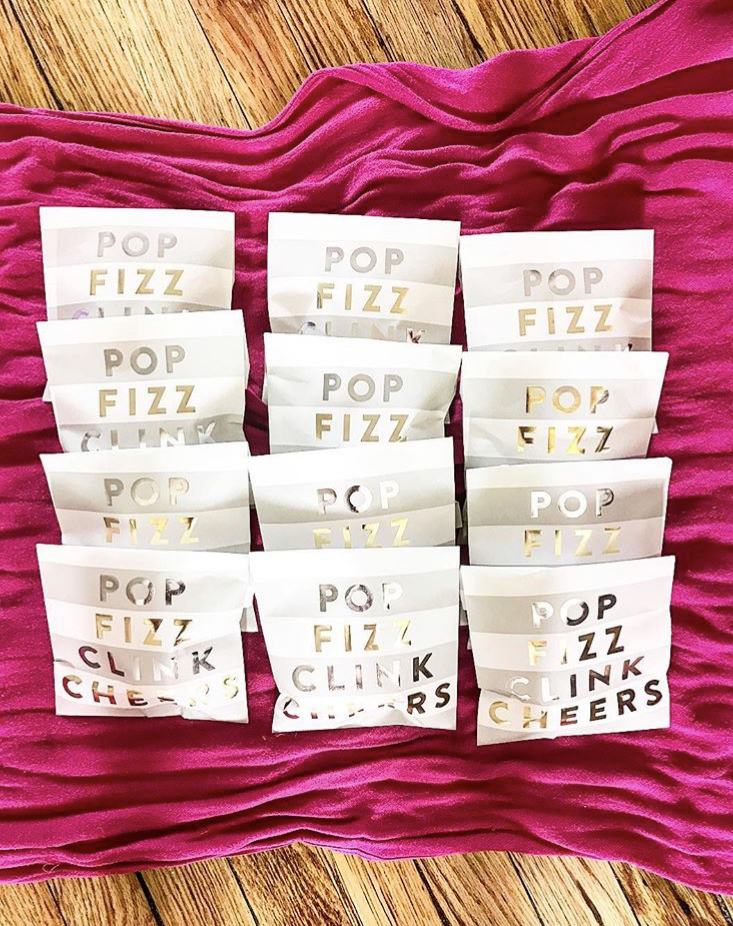 POP
FIZZ
CLINK
POP
FIZZ
CLINK
POP
FIZZ
CLINK
POP
FIZZ
CLINK
POP
FIZZ
POP
FIZZ
POP
FIZZ
POP
FIZZ
POP
FIZZ
POP
FIZZ
CLINK
CHEERS
POP
FIZZ
CLINK
CHEERS
POP
FIZZ
CLINK
CHEERS